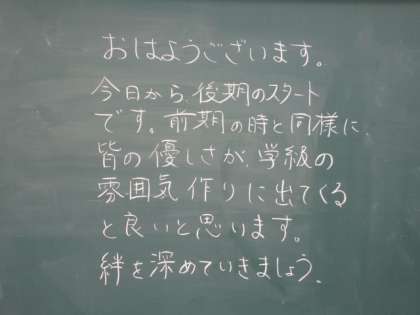 おはようございます。
今日から、後期のスタート
です。前期の時と同様に、
皆の優しさが、学級の
雰囲気作りに出てくる
と良いと思います。
絆を深めていきましょう。